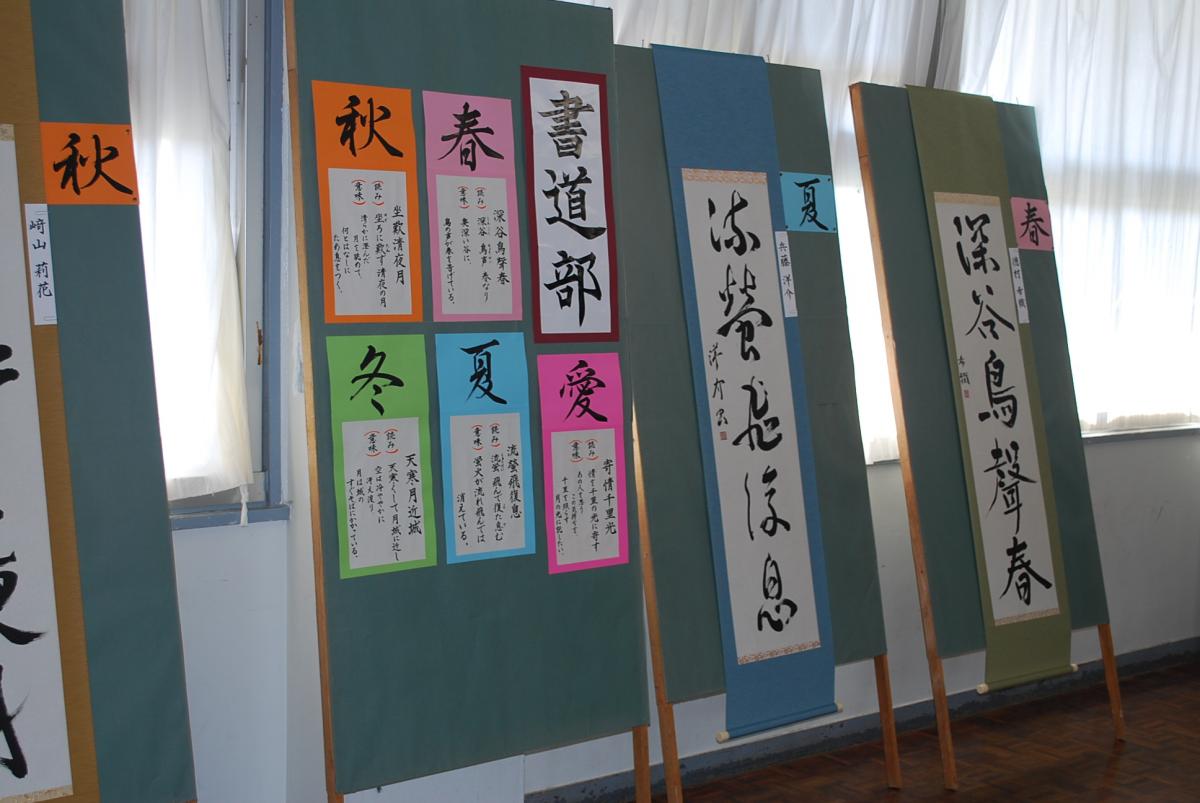 書道部
春
深谷鳥聲春
(読み)
深谷 鳥声 春なり
(意味)
奥深い谷に、
鳥の声が春を告げている。
秋
坐歎清夜月
(読み)
坐ろに歎ず 清夜の月
(意味)
清らかに澄んだ
月を眺めて、
何とはなしに
ため息をつく。
愛
寄情千里光
(読み)
情を千里の光に寄す
(意味)
あの人を思う
この気持ちを、
千里を照らす
月の光に託したい。
夏
流螢飛復息
(読み)
流螢 飛んで復た息む
(意味)
螢火が流れ飛んでは
消えている。
冬
天寒月近城
(読み)
天寒くして 月城に近し
(意味)
空は冷ややかに
冴え渡り
月は城の
すぐそばにかかっている。
春
深谷鳥聲春
夏
兵藤 洋介
流螢飛復息
秋
﨑山 莉花
夜月